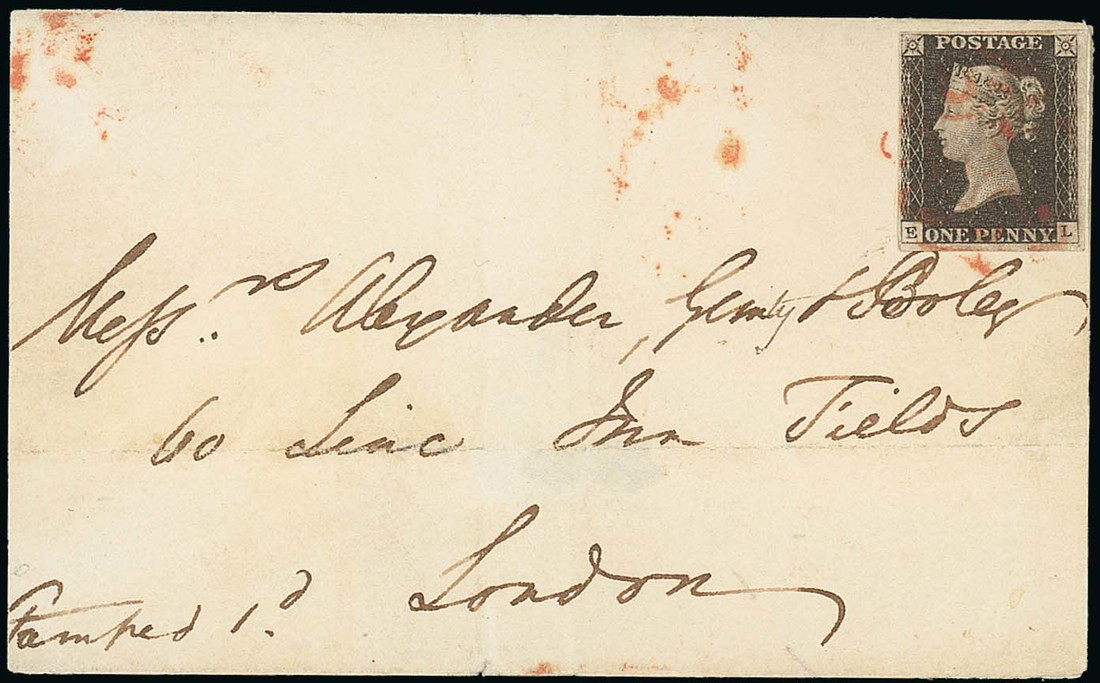 POSTAGE
E ONE PENNY L
Mess.rs Alexander, & 
60 Linc Inn Fields
London
Stamped 1.d